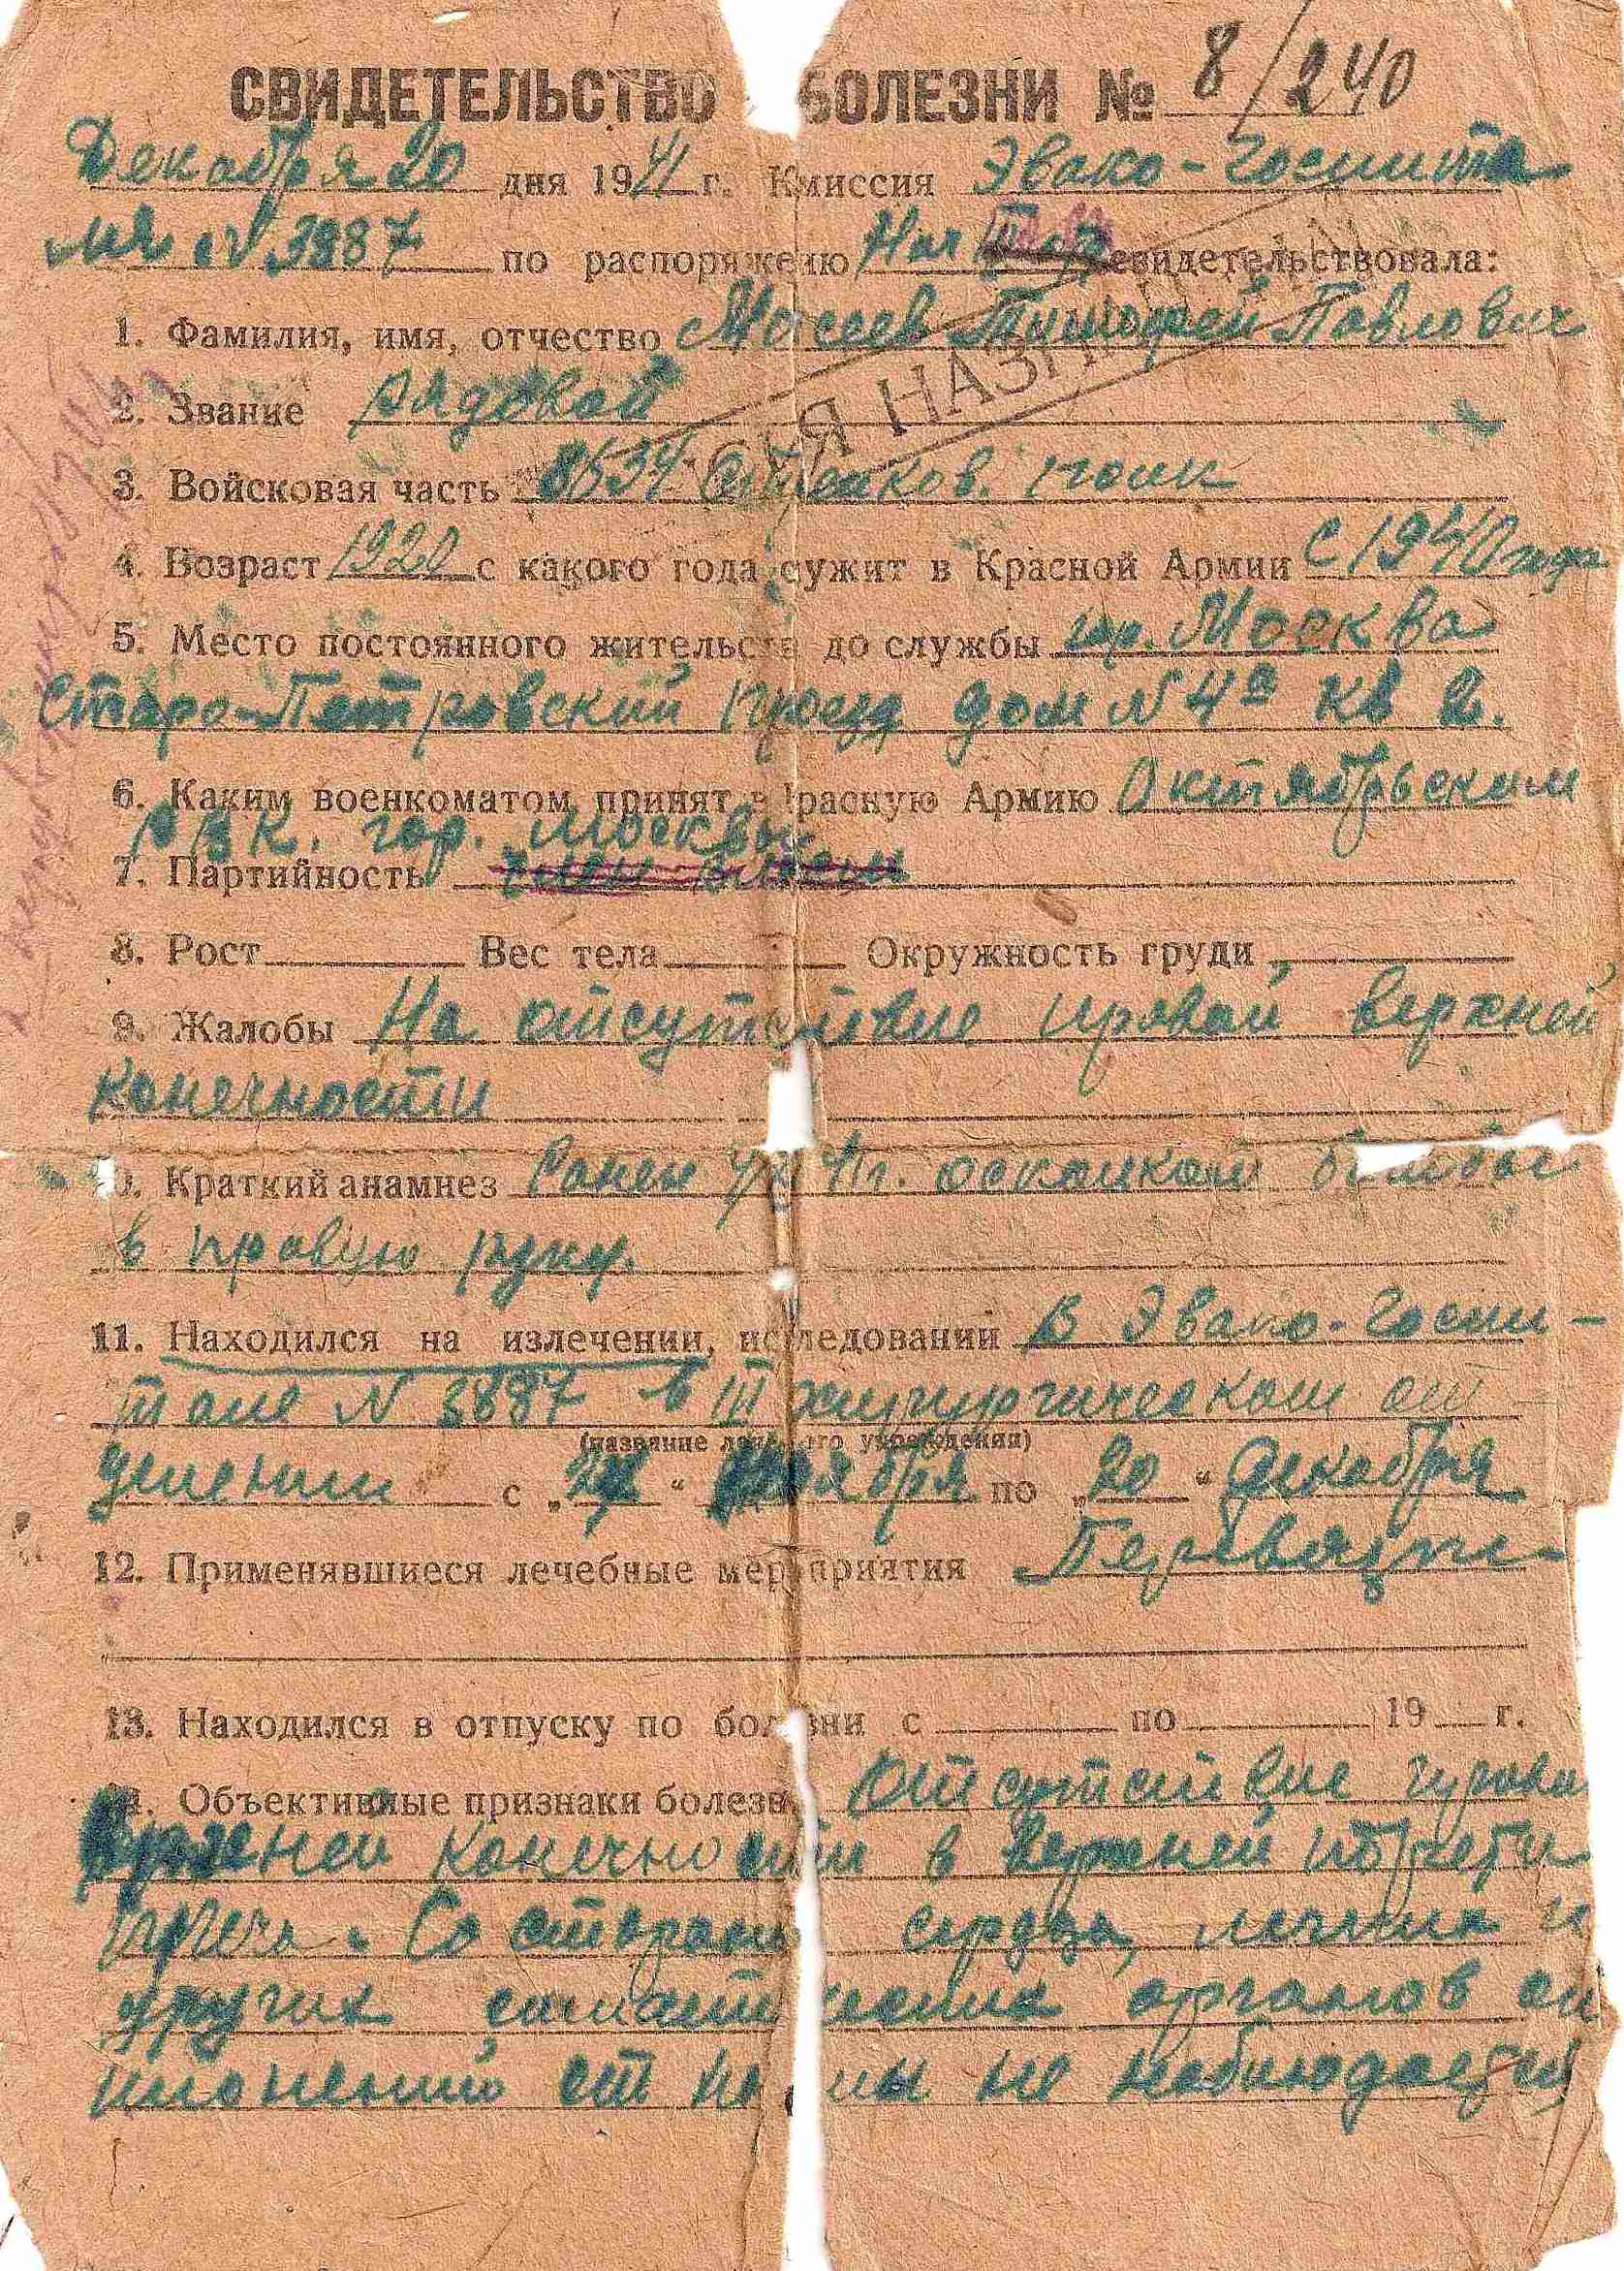 СВИДЕТЕЛЬСТВО БОЛЕЗНИ № 8/240
Декабря 20 дня 1941 г. Кмиссия Эвако-Госпита
ля № 3887 по распоряжению Нач свидетельствовала:
1. Фамилия, имя, отчество Мосеев Тимофей Павлович
2. Звание рядовой
Я НАЗН
3. Войсковая часть 8534 Стрелков. полк
4. Возраст 1920 с какого года сужит в Красной Армии с 1940 года
5. Место постоянного жительств до службы гор. Москва
Старо-Петровский проезд дом № 4а кв 2.
6. Каким военкоматом принят в Красную Армию Октябрьским
РВК. гор. Москвы
7. Партийность
8. Рост Вес тела Окружность груди
9. Жалобы На отсутствие правой верхней
конечности
10. Краткий анамнез Ранен 41 г. осколком бомбы
в правую руку.
11. Находился на излечении, исследовании в Эвако-Госпи-
тале № 3887 в III хирургическом от
(название лечебного учреждения)
делении с „ “ ноября по „20“ Декабря
12. Применявшиеся лечебные мероприятия Перевязки
13. Находился в отпуску по болезни с по 19 г.
14. Объективные признаки болезни Отсутствие правой
верхней конечности в верхней трети
плеча. Со стороны сердца, легких и
других органов от
клонений от нормы не наблюдается